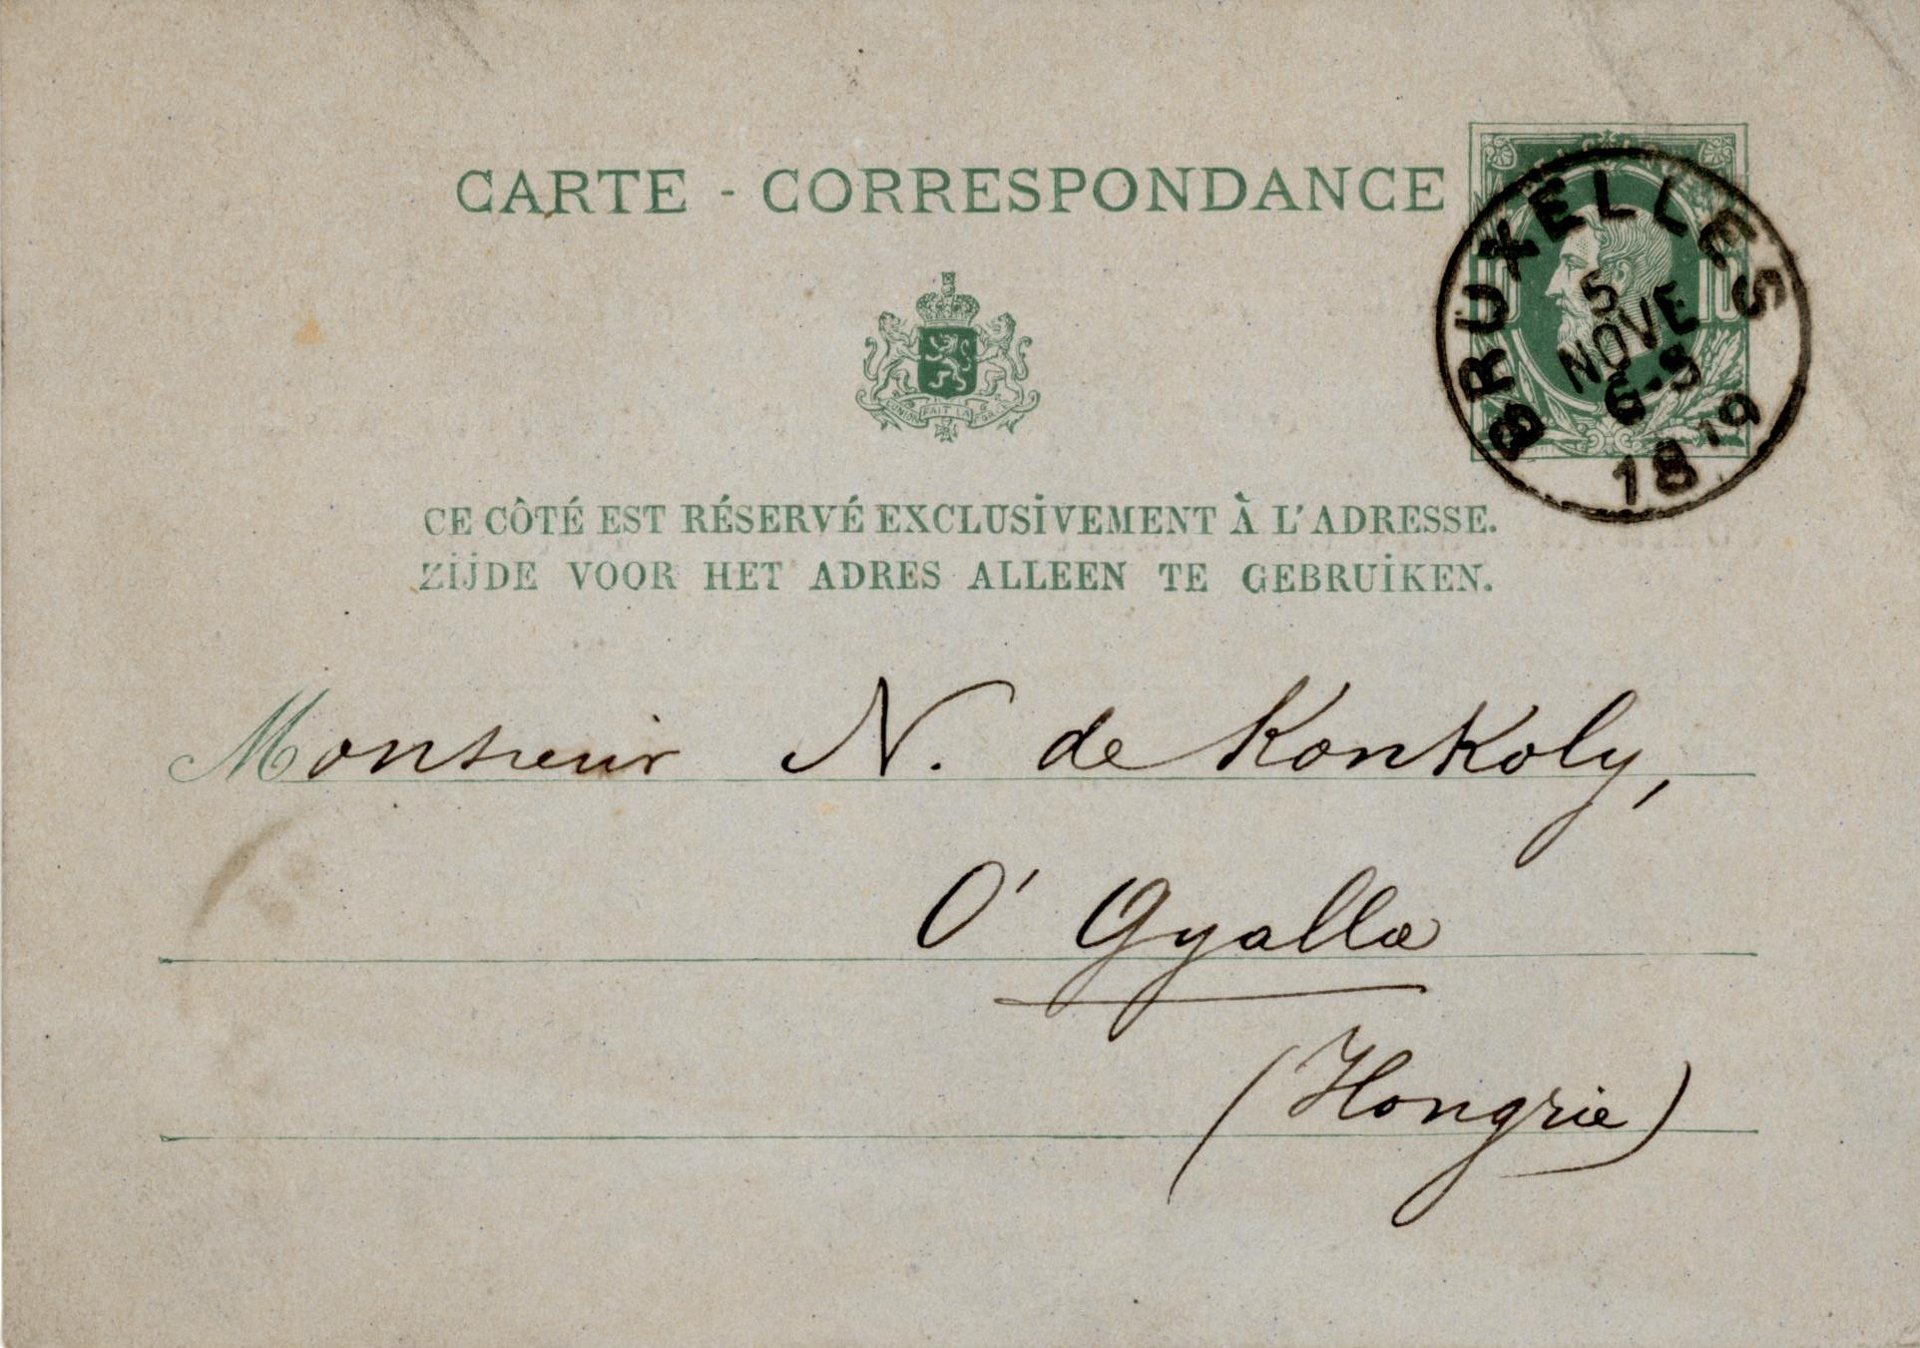 CARTE - CORRESPONDANCE
10
BRUXELLES
5
NOVE
6-8
18 9
8
L'UNION FAIT LA FORCE
CE CÔTÉ EST RÉSERVÉ EXCLUSIVEMENT À L'ADRESSE.
ZIJDE VOOR HET ADRES ALLEEN TE GEBRUIKEN.
Monsieur N. de Konkoly,
O' Gyalla
(Hongrie)